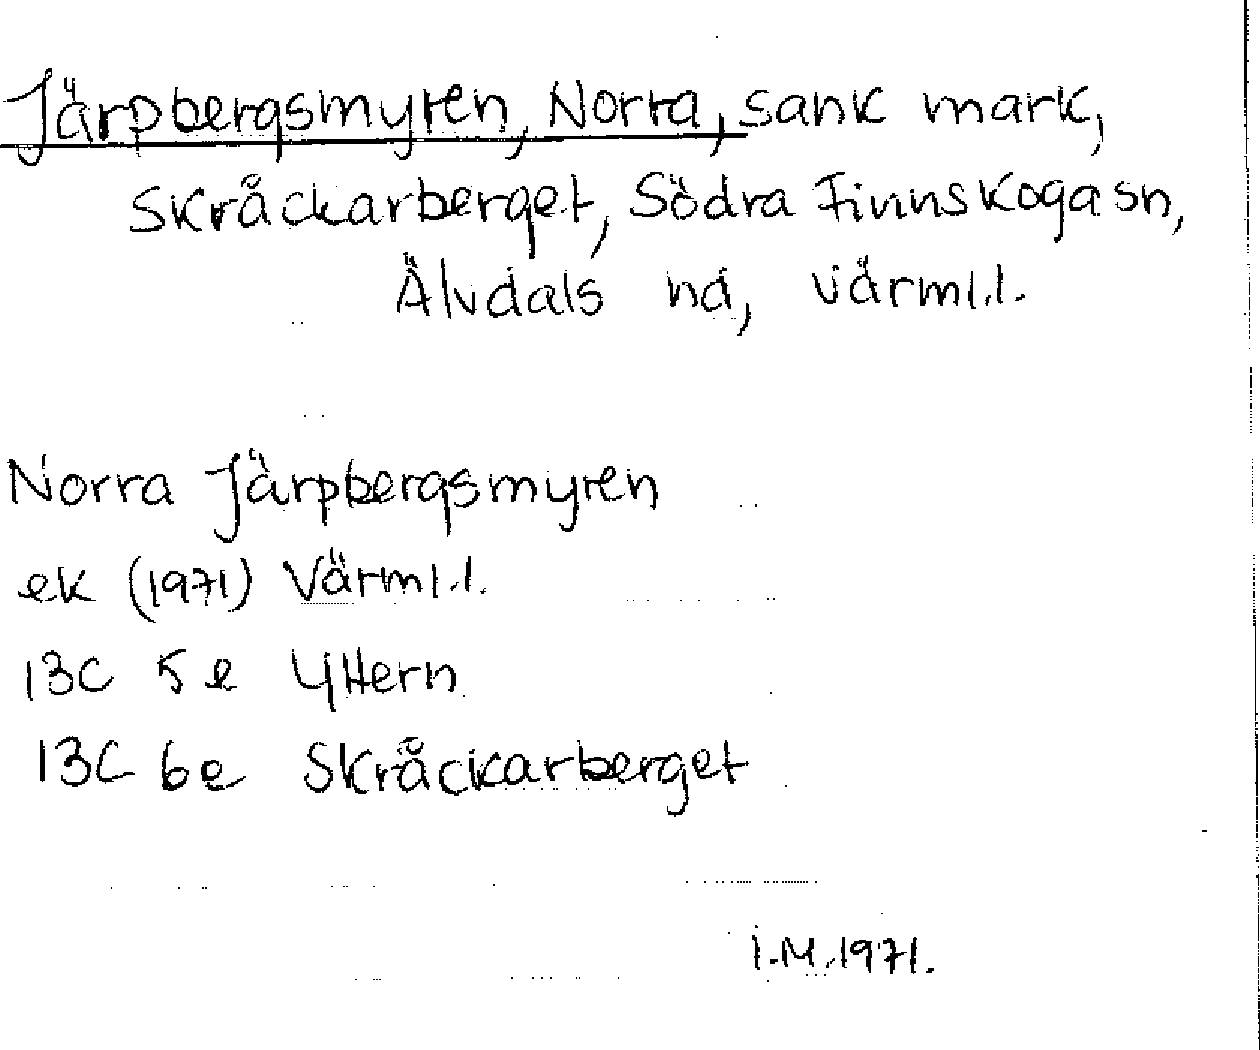 Järpbergsmyren, Norra, sank mark,
Skråckarberget, Södra Finnskoga sn,
Älvdals hd, Värml.l.
Norra Järpbergsmyren
ek (1971) Värml.l.
13C 5e Yttern
13C 6e Skråckarberget
I.M. 1971.